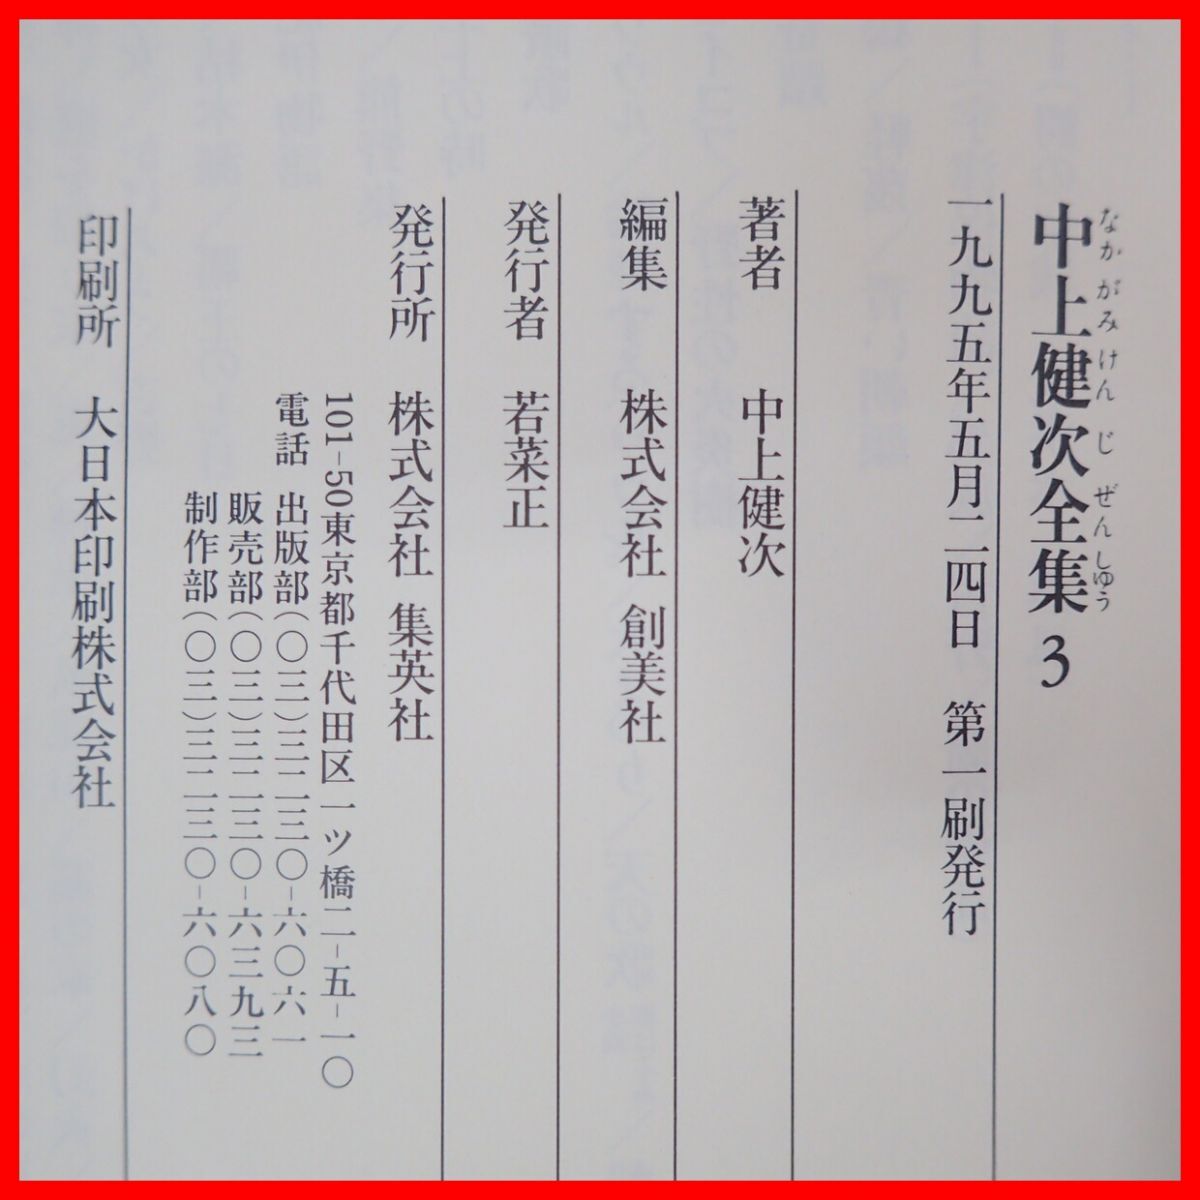 中上健次全集 3
なかがみけんじぜんしゅう
一九九五年五月二四日　第一刷発行
著者　中上健次
編集　株式会社 創美社
発行者　若菜正
発行所　株式会社 集英社
101-50東京都千代田区一ツ橋二-五-一〇
電話　出版部(〇三)三二三〇-六〇六一
販売部(〇三)三二三〇-六三九三
制作部(〇三)三二三〇-六〇八〇
印刷所　大日本印刷株式会社